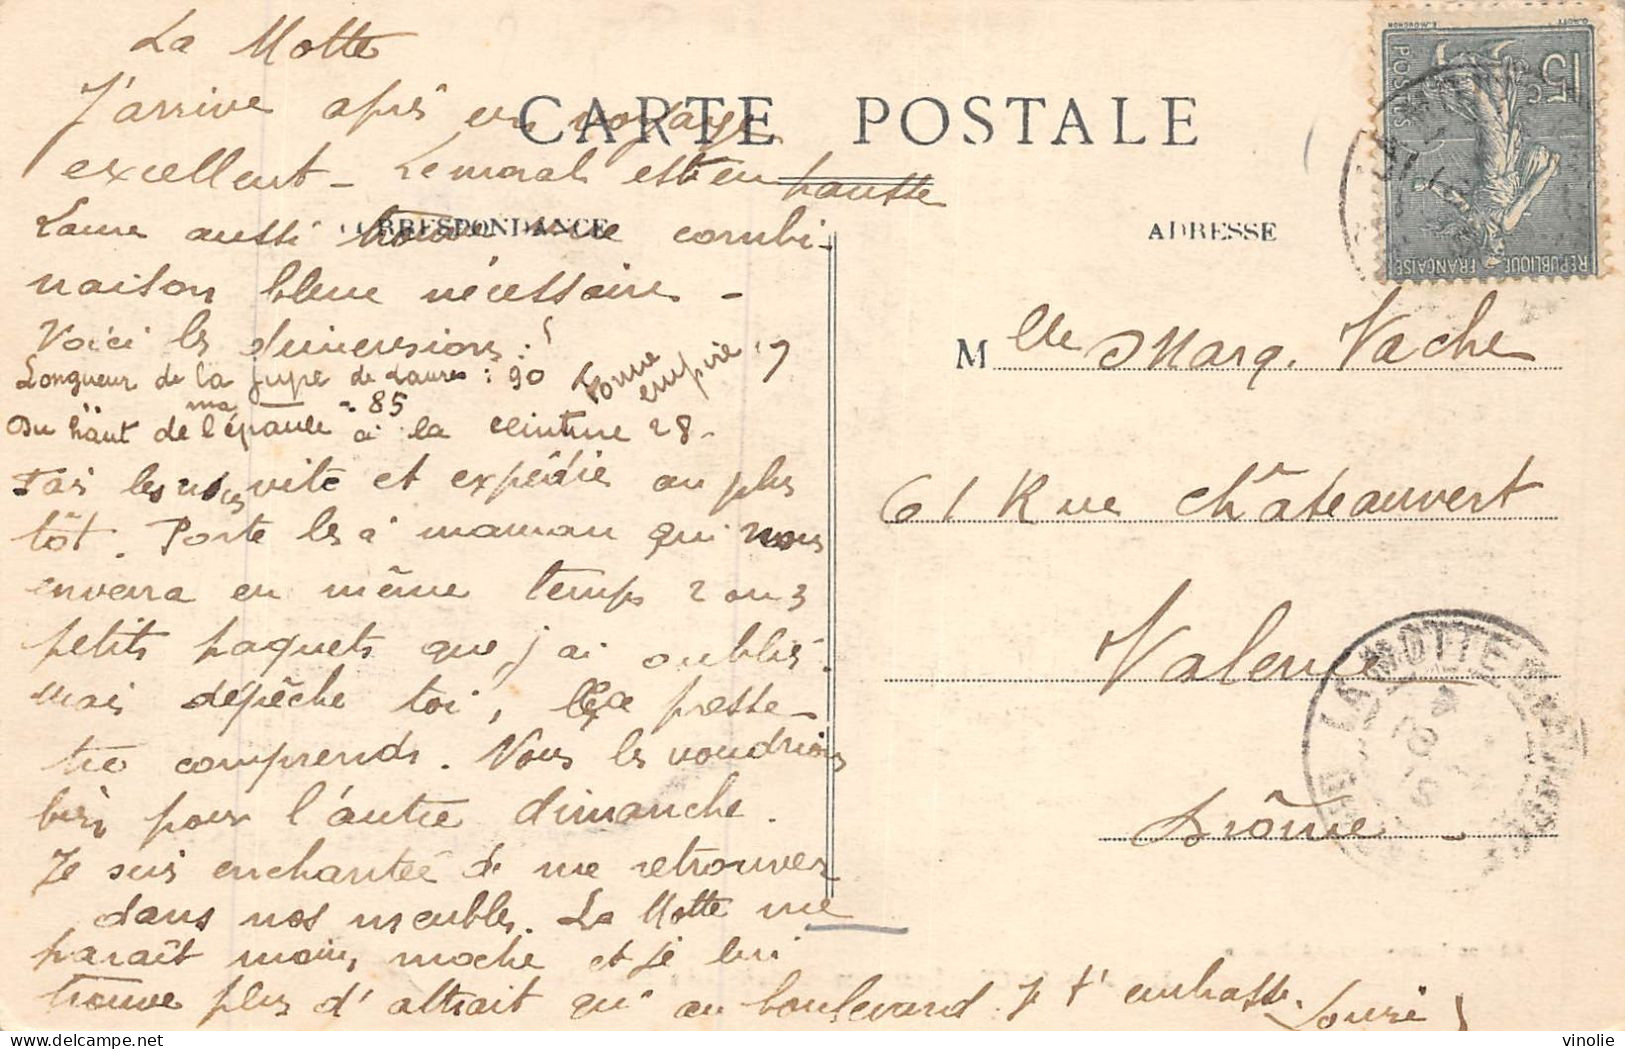 La Motte
J'arrive après un voyage
excellent - Le moral est en hausse
CARTE POSTALE
CORRESPONDANCE
Laure aussi trouve une combi-
naison bleue nécessaire -
Voici les dimensions :
Longueur de la jupe de Laure : 90
forme empire
ma - 85
Du haut de l'épaule à la ceinture 28 -
Fais les nous vite et expédie au plus
tôt. Porte les à maman qui nous
enverra en même temps 2 ou 3
petits paquets que j'ai oubliés.
Mais dépêche toi, ça presse
tu comprends. Nous les voudrions
bien pour l'autre dimanche.
Je suis enchantée de me retrouver
dans nos meubles. La Motte me
paraît moins moche et je lui
trouve plus d'attrait qu'au boulevard Je t'embrasse.
ADRESSE
Mlle Marg. Vache
61 Rue Châteauvert
Valence
Drôme
15 c
POSTES
REPUBLIQUE FRANÇAISE
O. ROTY
E. MOUCHON
LA MOTTE
vinolie - delcampe.net